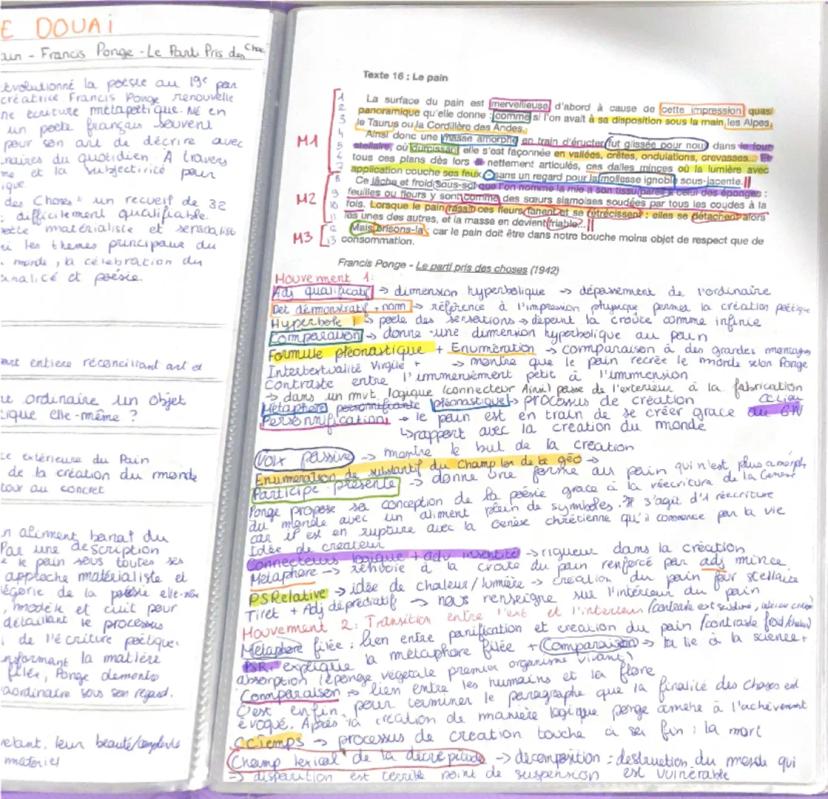 E DOUAI
ain - Francis Ponge - Le Parti Pris des Choses
évolutionné la poésie au 19e par
créatrice Francis Ponge renouvelle
ne écriture métapoétique. Né en
un poète français souvent
pour son art de décrire avec
naires du quotidien. A travers
me et la subjectivité pour
ique.
des Choses" un recueil de 32
difficilement qualifiable.
poète matérialiste et sensualiste
ici les thèmes principaux du
monde, la célébration du
analité et poésie.
art entière réconciliant art et
u ordinaire un objet
tique elle-même ?
te extérieure du Pain
de la création du monde
tour au concret
n aliment banal du
Par une description
e le pain sous toutes ses
approche matérialiste et
légorie de la poésie elle-même
modelé et cuit pour
détaillant le processus
de l'écriture poétique.
nsformant la matière
filée, Ponge démontre
aordinaire sous son regard.
relant, leur beauté/complexité
matériel
Texte 16 : Le pain
1 La surface du pain est merveilleuse d'abord à cause de cette impression quasi
2 panoramique qu'elle donne : comme si l'on avait à sa disposition sous la main les Alpes,
3 le Taurus ou la Cordillère des Andes.
4 Ainsi donc une masse amorphe en train d'éructer fut glissée pour nous dans le four
M1 5 stellaire, où durcissant elle s'est façonnée en vallées, crêtes, ondulations, crevasses… Et
6 tous ces plans dès lors si nettement articulés, ces dalles minces où la lumière avec
7 application couche ses feux, - sans un regard pour la mollesse ignoble sous-jacente.
8 Ce lâche et froid sous-sol que l'on nomme la mie a son tissu pareil à celui des éponges :
M2 9 feuilles ou fleurs y sont comme des sœurs siamoises soudées par tous les coudes à la
10 fois. Lorsque le pain rassit ces fleurs fanent et se rétrécissent : elles se détachent alors
11 les unes des autres, et la masse en devient friable…
M3 12 Mais brisons-la : car le pain doit être dans notre bouche moins objet de respect que de
13 consommation.
Francis Ponge - Le parti pris des choses (1942)
Mouvement 1:
Adj qualificatif → dimension hyperbolique → dépassement de l'ordinaire
Det démonstratif + nom → référence à l'impression physique permet la création poétique
Hyperbole → poète des sensations → dépeint la croûte comme infinie
Comparaison → donne une dimension hyperbolique au pain
Formule pléonastique + Enumération → comparaison à des grandes montagnes
Intertextualité Virgile + → montre que le pain recrée le monde selon Ponge
Contraste entre l'immensément petit à l'immension
→ dans un mvt logique (connecteur Ainsi) passe de l'extérieur à la fabrication
Métaphore personnifiante pléonastique → processus de création
Personnification → le pain est en train de se créer grâce au GN
↳ rapport avec la création du monde
Voix passive → montre le but de la création
Enumération de substantif du champ lex de la géo →
Participe présente → donne une forme au pain qui n'est plus amorphe
Ponge propose sa conception de la poésie grâce à la réécriture de la Genèse
du monde avec un aliment plein de symboles. Il s'agit d'1 réécriture
car il est en rupture avec la Genèse chrétienne qui commence par la vie
Idée de créateur
Connecteurs logique + adv intensité → rigueur dans la création
Métaphore → renvoie à la croûte du pain renforcé par adj mince
PSRelative → idée de chaleur/lumière → création du pain four stellaire
Tiret + Adj dépréciatif → nous renseigne sur l'intérieur du pain
Mouvement 2: Transition entre l'ext et l'intérieur
Métaphore filée : lien entre panification et création du pain (contraste froid/chaleur)
PSR. explique la métaphore filée + Comparaison → la lie à la science +
absorption (éponge végétale premier organisme vivant)
Comparaison → lien entre les humains et la flore
C'est enfin pour terminer le paragraphe que la finalité des choses est
évoqué. Après la création de manière logique ponge amène à l'achèvement
CCTemps → processus de création touche à sa fin : la mort
Champ lexical de la décrépitude → décomposition : destruction du monde qui
→ disparition est terrible point de suspension est vulnérable